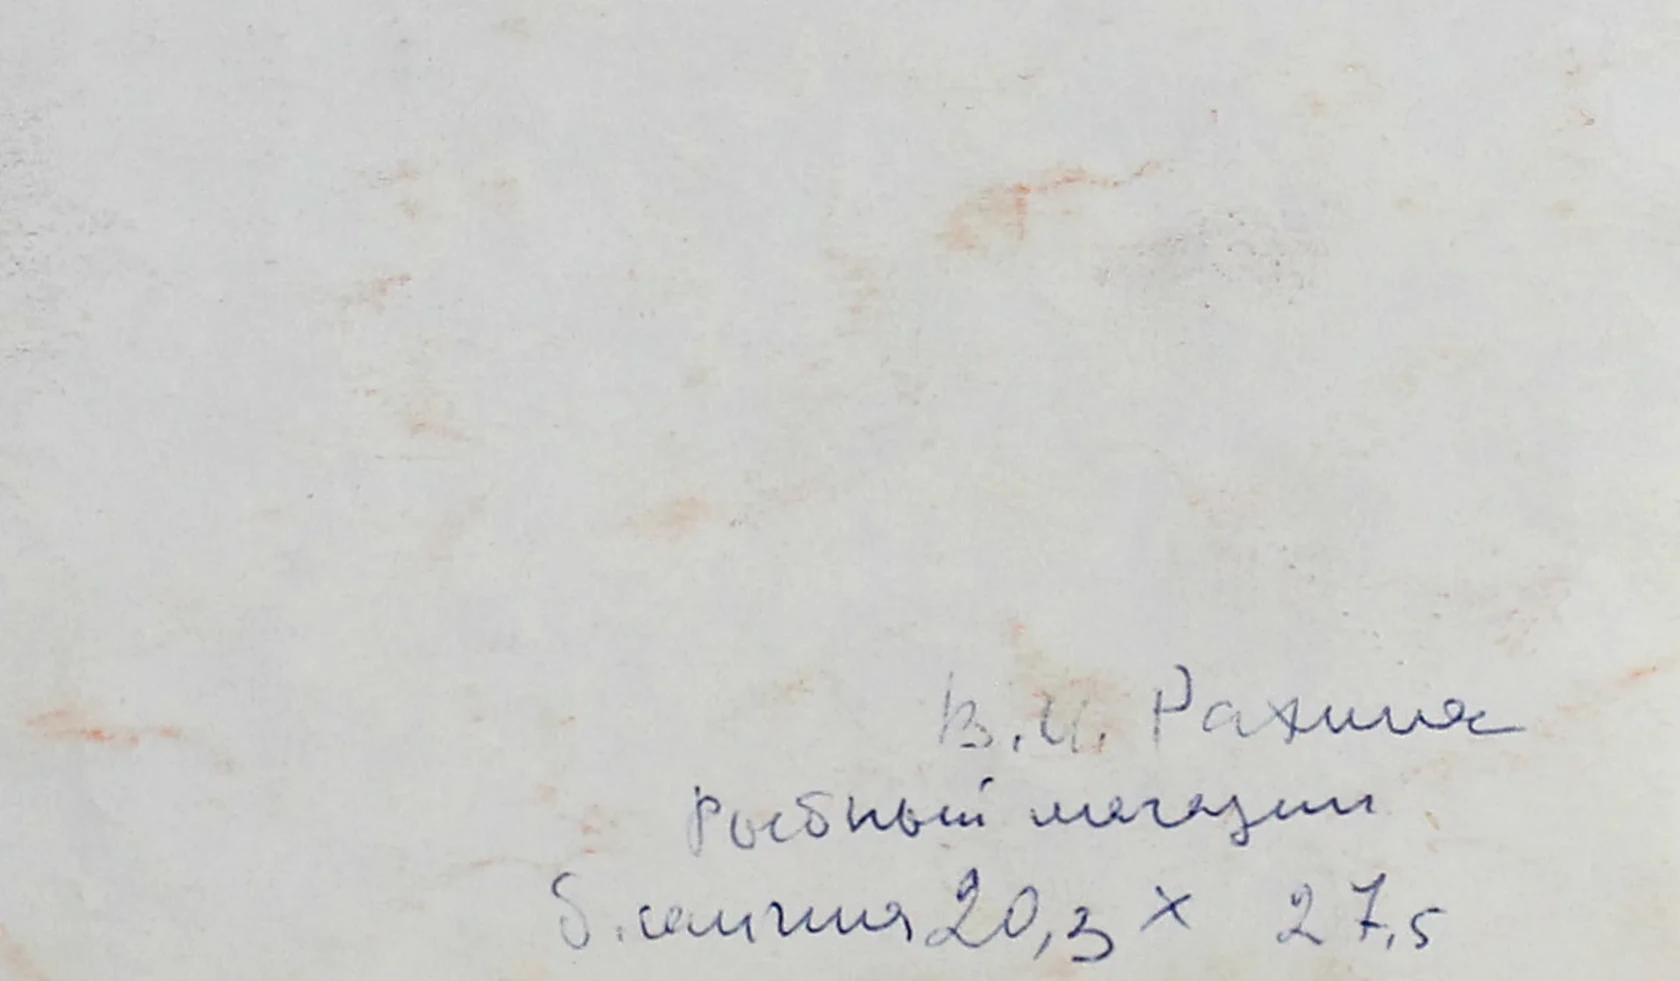 В.И. Рахина
Рыбный магазин
б. сангина 20,3 х 27,5